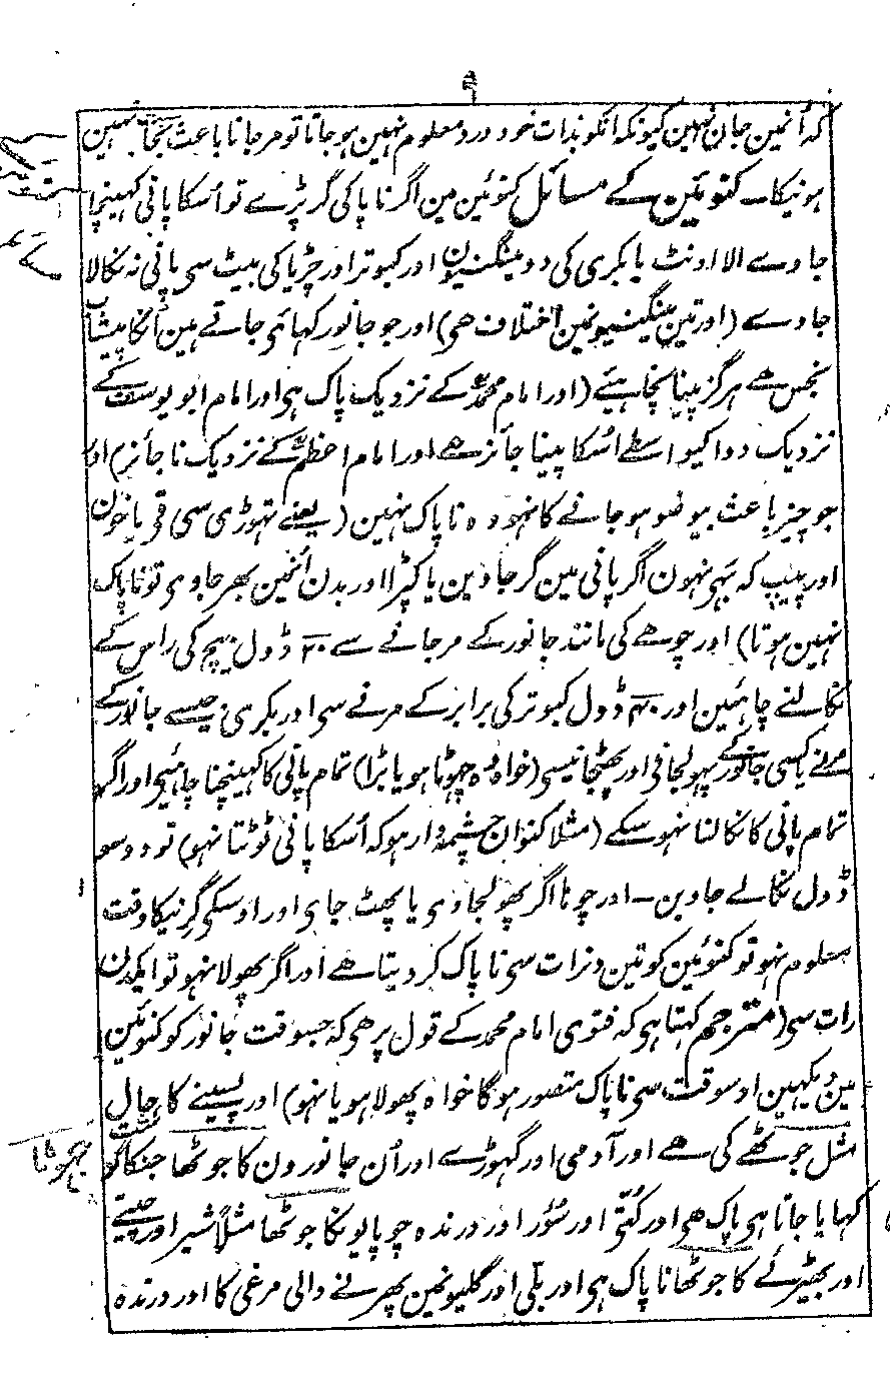 ۹
کہ اُنمین جان نہین کیونکہ انکو بذات خود درد معلوم نہین ہو جاتا تو مر جانا باعث نجاست نہین
ہونیکا۔ کنوئین کے مسائل کنوئین مین اگر ناپاکی گر پڑے تو اُسکا پانی کھینچا
جاوے الا اونٹ یا بکری کی دو مینگنیون اور کبوتر اور چڑیا کی بیٹ سی پانی نہ نکالا
جاوے (اور تین مینگنیونمین اختلاف ھی) اور جو جانور کہائی جاتے ہین اُنکا پیشاب
نجس ھے ہرگز پینا نچاہیئے (اور امام محمدؒ کے نزدیک پاک ہی اور امام ابو یوسفؒ کے
نزدیک دوا کیواسطے اُسکا پینا جائز ھے اور امام اعظمؒ کے نزدیک ناجائز) اور
جو چیز باعث بیوضو ہو جانے کا نہو وہ ناپاک نہین (یعنے تہوڑی سی قی یا خون
اور پیپ کہ بہی نہون اگر پانی مین گر جاوین یا کپڑا اور بدن اُنمین بھر جاوی تو ناپاک
نہین ہوتا) اور چوھے کی مانند جانور کے مر جانے سے ۲۰ ڈول بیچ کی راس کے
نکالنے چاہئین اور ۴۰ ڈول کبوتر کی برابر کے مرنے سی اور بکری جیسے جانور کے
مرنے یا کسی جانور کے پہولجانی اور پھٹجانیسی (خواہ وہ چہوٹا ہو یا بڑا) تمام پانی کا کہینچنا چاہئی اور اگر
تمام پانی کا نکالنا نہوسکے (مثلا کنوان چشمہ دار ہو کہ اُسکا پانی ٹوٹتا نہو) تو دو سو
ڈول نکالے جاوین۔ اور چوہا اگر پھولجاوی یا پھٹ جای اور اوسکی گرنیکا وقت
معلوم نہو تو کنوئین کو تین دنرات سی ناپاک کر دیتا ھے اور اگر پھولا نہو تو ایکدن
رات سی (مترجم کہتا ہی کہ فتوی امام محمد کے قول پر ھی کہ جسوقت جانور کو کنوئین
مین دیکہین اوسوقت سی ناپاک متصور ہوگا خواہ پھولا ہو یا نہو) اور پسینے کا حال
مثل جوٹھے کی ھے اور آدمی اور گہوڑے اور اُن جانورون کا جوٹھا جنکا گوشت
کہایا جاتا ہی پاک ھی اور کُتّی اور سُوّر اور درندہ چوپایونکا جوٹھا مثلاً شیر اور چیتے
اور بھیڑئے کا جوٹھا ناپاک ہی اور بلّی اور گلیونمین پھرنے والی مرغی کا اور درندہ
جہوٹا